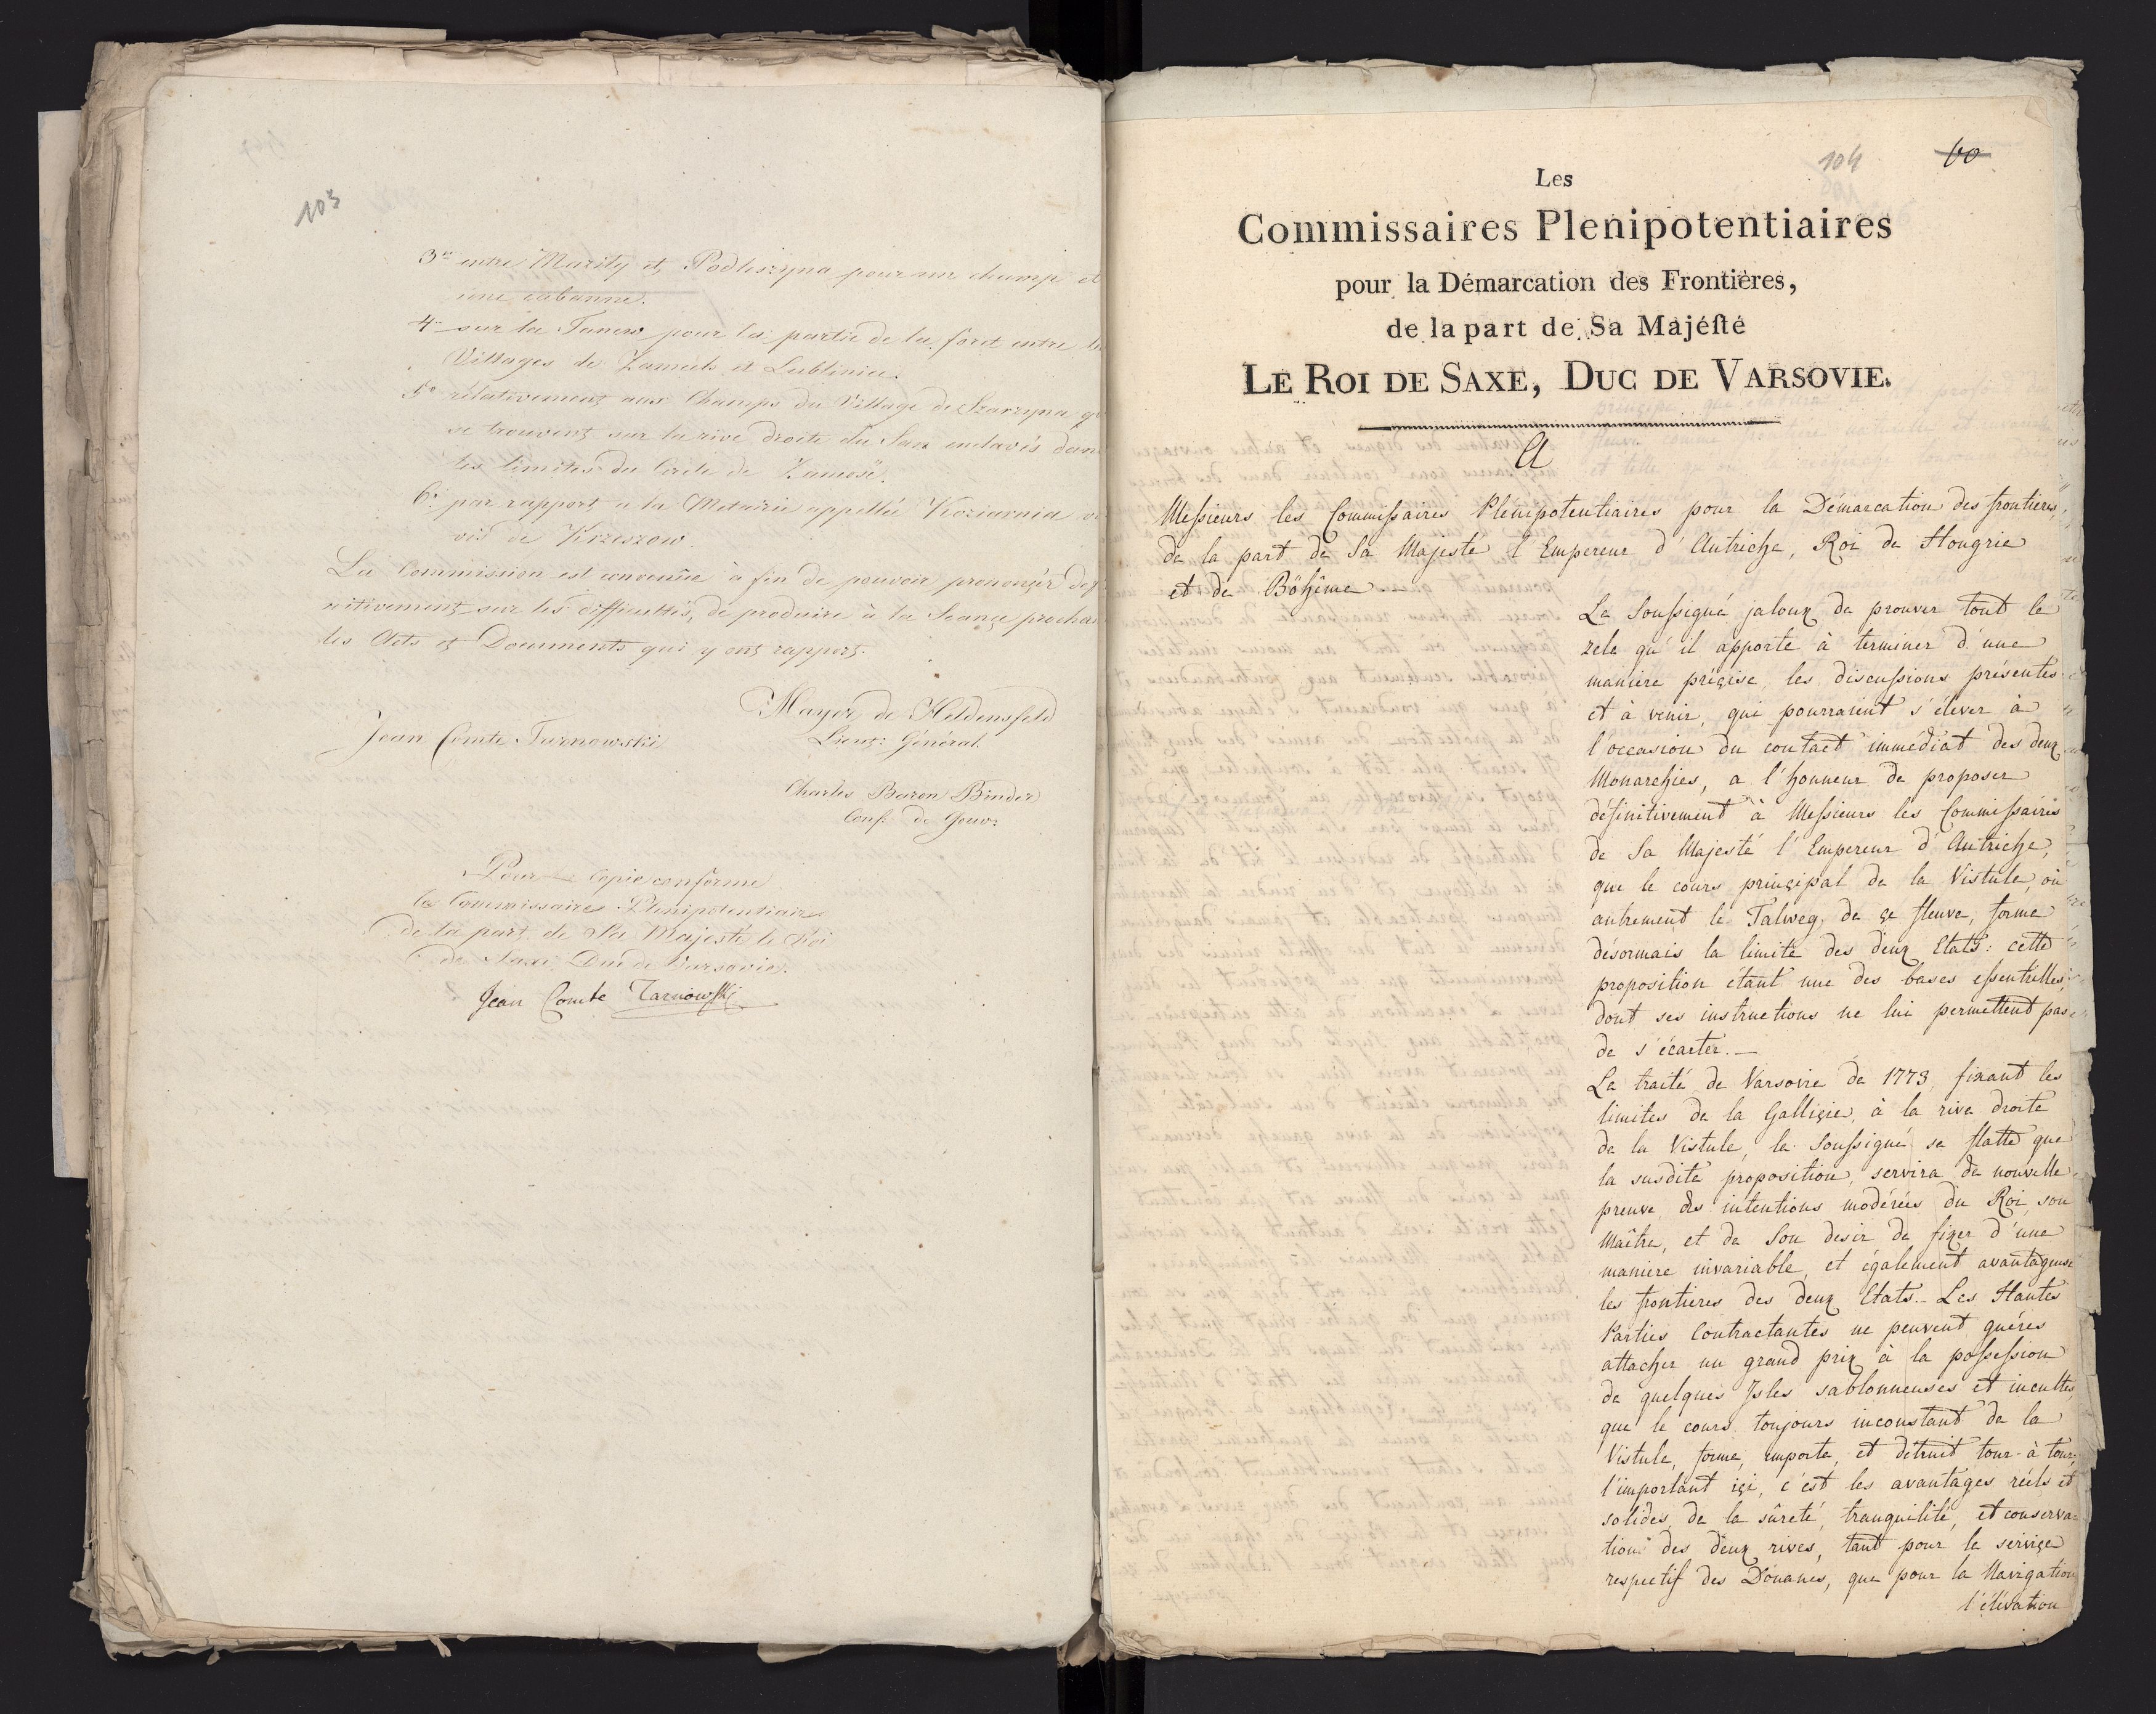 103
3º entre Maxity et Podleszyna pour un champ et
une cabanne.
4º sur la Tanew pour la partie de la forêt entre les
Villages de Zamech et Lublinice.
5º rélativement aux Champs du Village de Szarzyna qui
se trouvent sur la rive droite du San enclavés dans
les limites du Cercle de Zamosć.
6º par rapport a la Metairie appellée Koziarnia
vis de Krzeszow.
La Commission est convenüe à fin de pouvoir prononçer defi
nitivement sur les difficultés, de produire à la Séançe prochai
les Acts et Documents qui y ont rapport.
Mayer de Heldensfeld
Lieut: Général.
Jean Comte Tarnowski
Charles Baron Binder
Conf: de Gouv:
Pour Copie conforme
les Commissaires Plenipotentiaires
de la part de Sa Majesté le Roi
de Saxe Duc de Varsovie.
Jean Comte Tarnowski
104
60
Les
Commissaires Plenipotentiaires
pour la Démarcation des Frontières,
de la part de Sa Majéſté
LE ROI DE SAXE, DUC DE VARSOVIE.
A
Meſsieurs les Commiſsaires Plénipotentiaires pour la Démarcation des frontieres,
de la part de Sa Majeste l'Empereur d'Autriche, Roi de Hongrie
et de Böhême.—
Le Souſsigné jaloux de prouver tout le
zele qu'il apporte à terminer d'une
maniere préçise, les discuſsions présentes
et à venir, qui pourraient s'élever à
l'occasion du contact immédiat des deux
Monarchies, a l'honneur de proposer
définitivement à Meſsieurs les Commiſsaires
de Sa Majesté l'Empereur d'Autriche,
que le cours prinçipal de la Vistule, où
autrement le Talweg, de çe fleuve, forme
désormais la limite des deux Etats: cette
proposition étant une des bases eſsentielles,
dont ses instructions ne lui permettent pas
de s'écarter.—
Le traité de Varsovie de 1773, fixant les
limites de la Galliçie, à la rive droite
de la Vistule, le Souſsigné se flatte que
la susdite proposition, servira de nouvelle
preuve des intentions modérées du Roi, son
Maître, et de Son desir de fixer d'une
maniere invariable, et également avantageuse
les frontieres des deux Etats. Les Hautes
Parties Contractantes ne peuvent guéres
attacher un grand prix à la poſseſsion
de quelques Isles sablonneuses et incultes,
que le cours toujours inconstant de la
Vistule, forme, emporte, et détruit tour-à tour;
l'important içi, c'est les avantages réels et
solides, de la sûreté, tranquilité, et conserva=
tion des deux rives, tant pour le serviçe
respectif des Douanes, que pour la Navigation
l'élévation